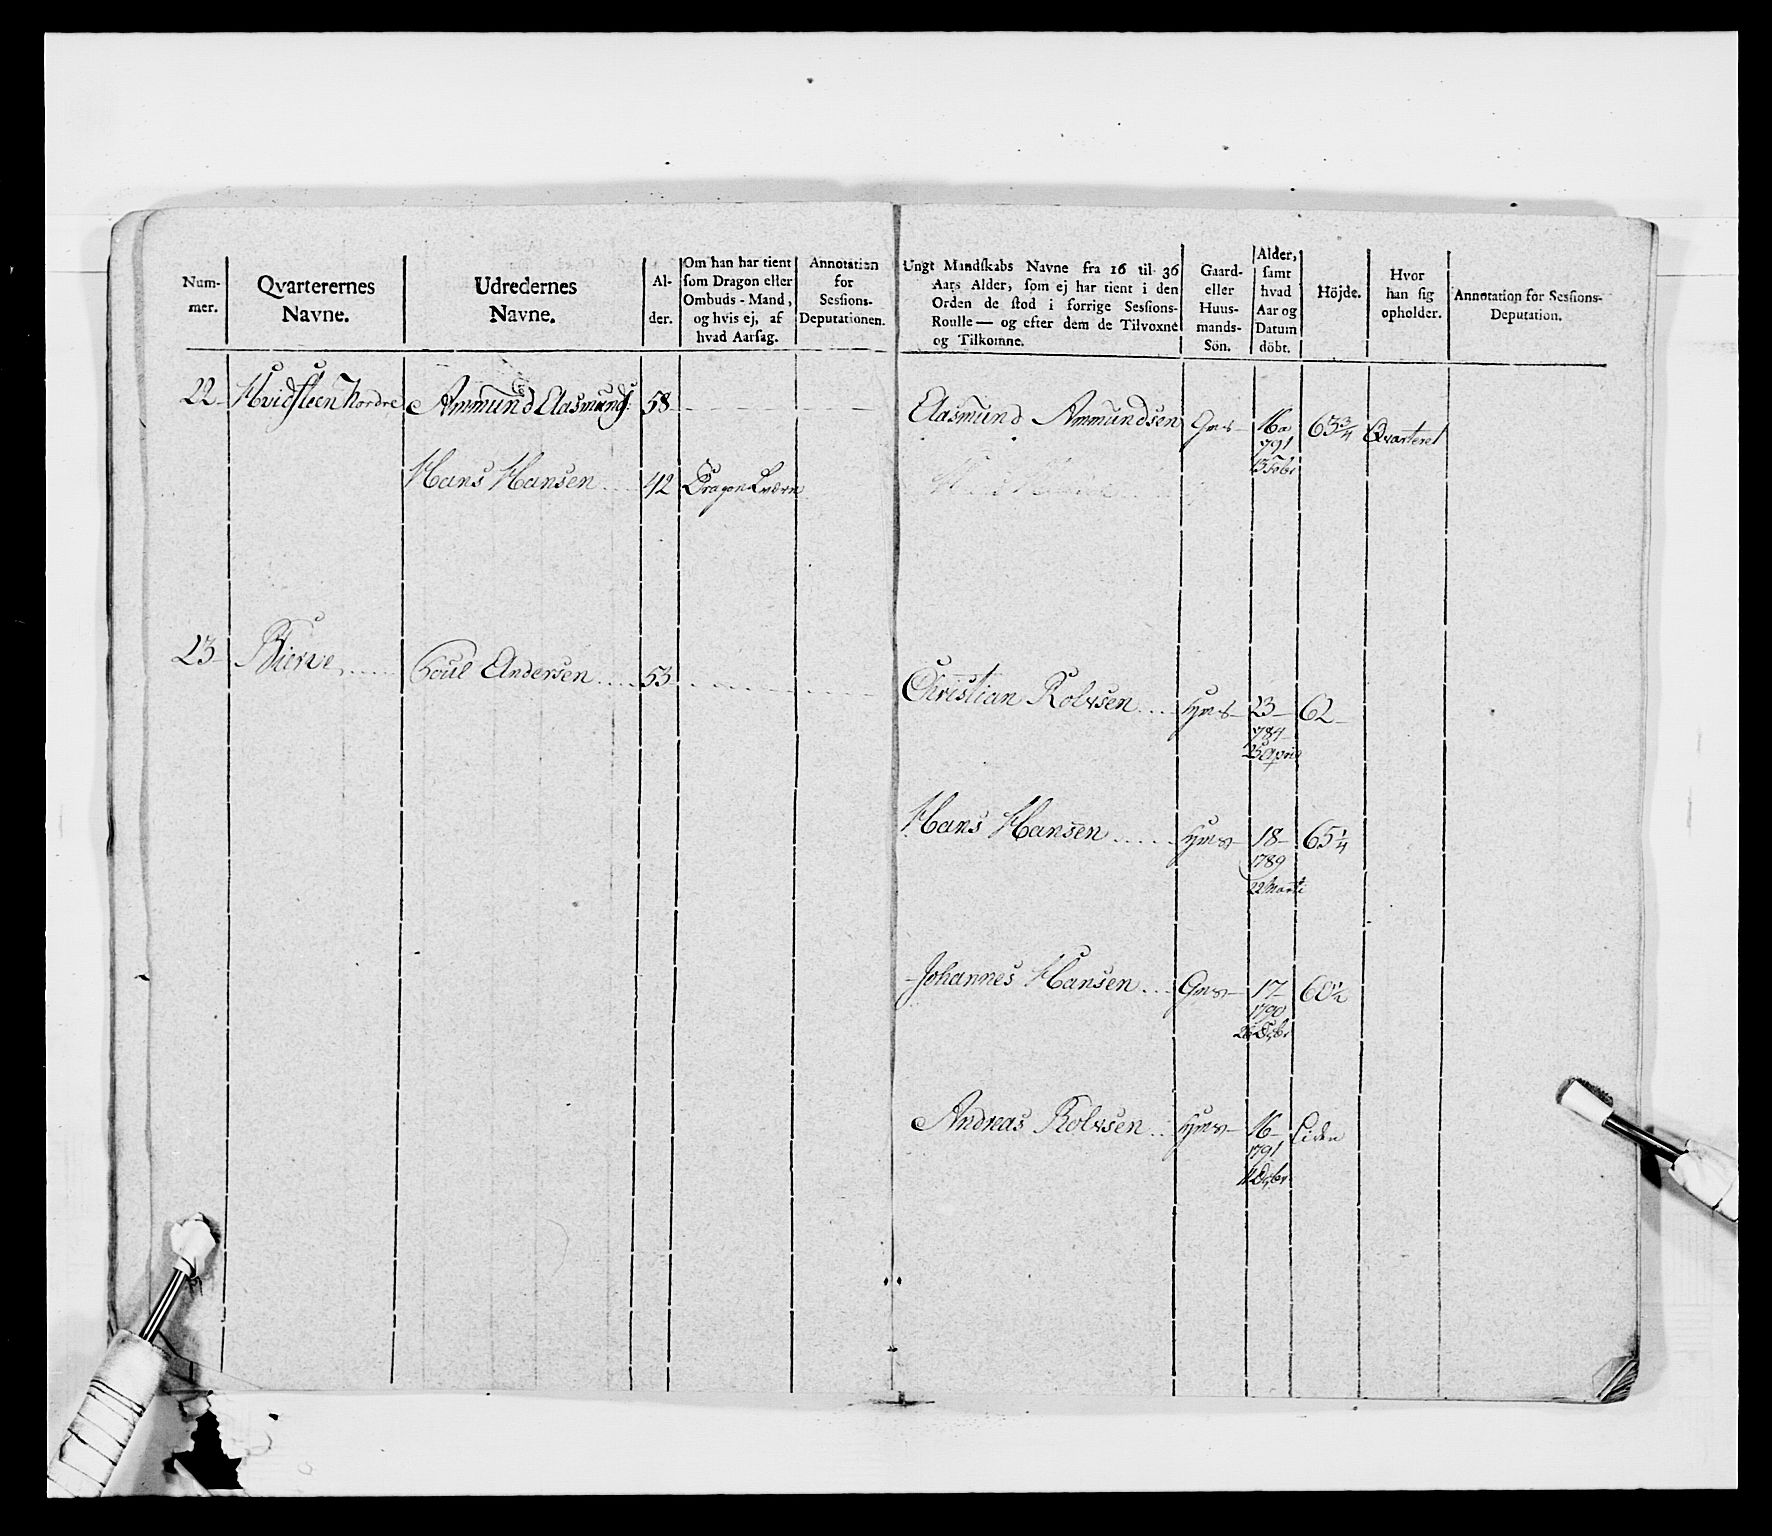 Num-
mer.
Qvarterernes
Navne.
Udredernes
Navne.
Al-
der.
Om han har tient
som Dragon eller
Ombuds-Mand,
og hvis ej, af
hvad Aarsag.
Annotation
for
Sessions-
Deputationen.
Ungt Mandskabs Navne fra 16 til 36
Aars Alder, som ej har tient i den
Orden de stod i forrige Sessions-
Roulle — og efter dem de Tilvoxne
og Tilkomne.
Gaard-
eller
Huus-
mands-
Sön.
Alder,
samt
hvad
Aar og
Datum
döbt.
Höjde.
Hvor
han sig
opholder.
Annotation for Sessions-
Deputation.
22 Hvidsteen Nordre Ammund Aasmunds: 58
Aasmund Ammundsen Gms 16 63 3/4 Qvarteret
791
Hans Hansen 42 Dragon
23 Bierve Poul Andersen 53
Christian Rolvsen Hms 23 62
784
25 April
Hans Hansen Hms 18 65 1/4
1789
22 Marti
Johannes Hansen Gms 17 60 1/2
1790
Andreas Rolvsen Hms 16 Liden
1791